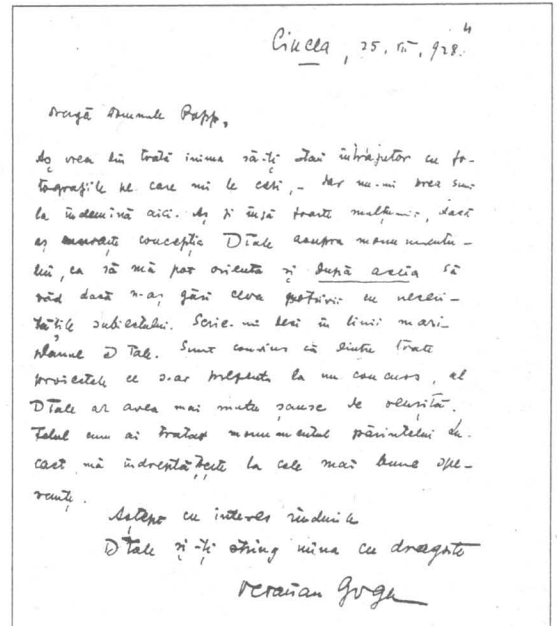 Ciucea, 25. III. 928.
Dragă Domnule Papp,
Aș vrea din toată inima să-ți stau într'ajutor cu fo-
tografiile pe care mi le ceri, - dar nu-mi prea sunt
la îndemînă aici. Aș fi însă foarte mulțumit, dacă
aș cunoaște concepția Dtale asupra monumentu-
lui, ca să mă pot orienta și după aceia să
văd dacă n-aș găsi ceva potrivit cu necesi-
tățile subiectului. Scrie-mi deci în linii mari
planul D Tale. Sunt convins că dintre toate
proiectele ce s-ar prezenta la un concurs, al
DTale ar avea mai multe șanse de reușită.
Felul cum ai tratat monumentul părintelui Lu-
caci mă îndreptățește la cele mai bune spe-
ranțe.
Aștept cu interes rîndurile
DTale și-ți strîng mîna cu dragoste
Octavian Goga